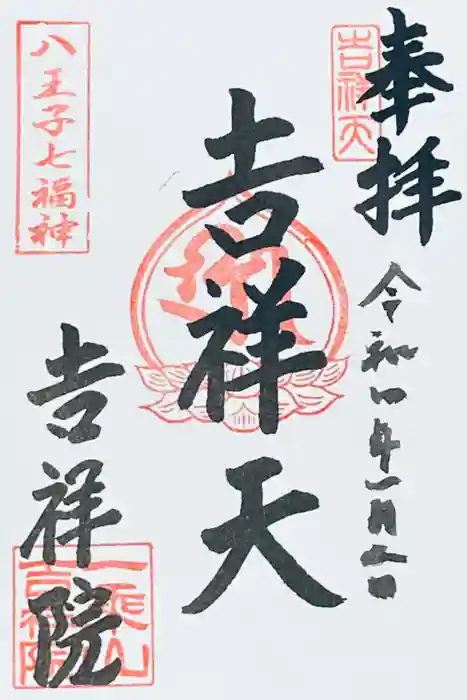 奉拝
吉祥天
令和四年一月五日
吉祥天
八王子七福神
吉祥院